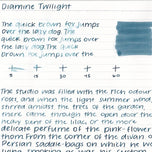 Diamine Twilight
The quick brown fox jumps
over the lazy dog. The
quick brown fox jumps over
the lazy dog. The quick
brown fox jumps over the
5 15 30 45 60
The studio was filled with the rich odour
roses, and when the light summer wind
stirred amidst the trees of the garden,
there came through the open door the
heavy scent of the lilac, or the more
delicate perfume of the pink-flower
thorn. From the corner of the divan of
Persian saddle-bags on which he w